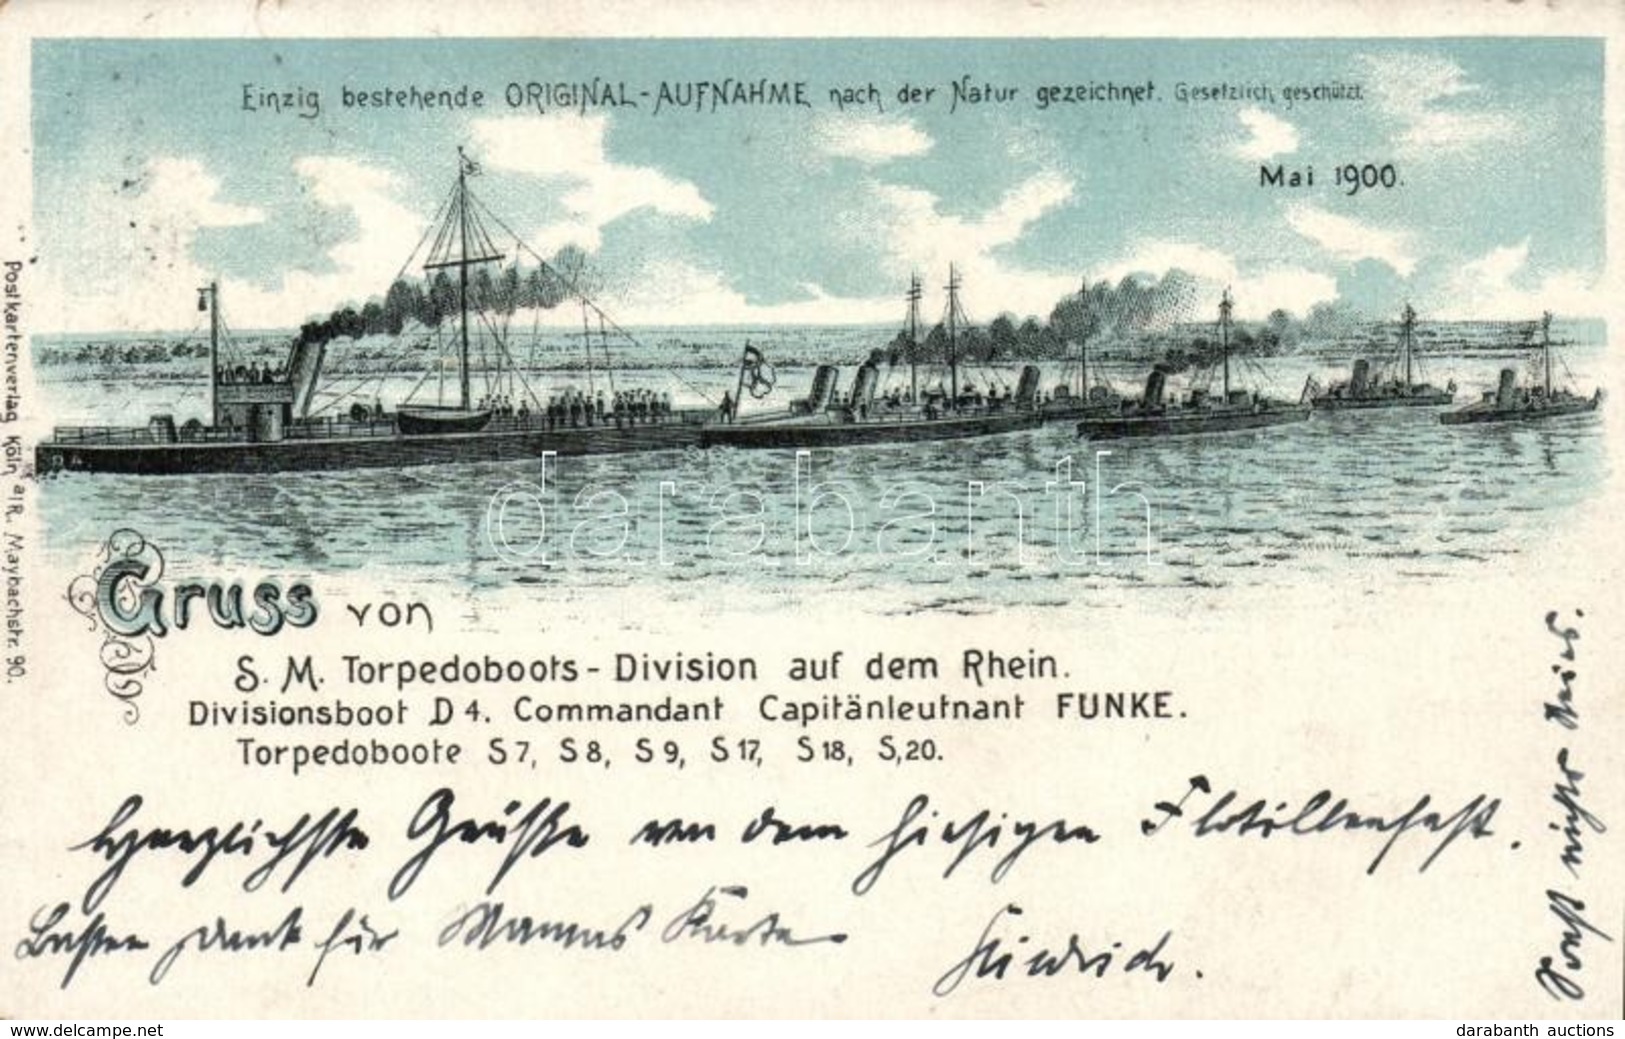 Einzig bestehende ORIGINAL-AUFNAHME nach der Natur gezeichnet. Gesetzlich geschützt.
Mai 1900.
Postkartenverlag Köln a/R. Maybachstr. 90.
darabanth
Gruss von
S. M. Torpedoboots-Division auf dem Rhein.
Divisionsboot D 4. Commandant Capitänleutnant FUNKE.
Torpedoboote S 7, S 8, S 9, S 17, S 18, S, 20.
Herzlichste Grüße von dem hiesigen Flotillenfest.
Besten Dank für Mamas Karte
Friedrich.
Sonst nichts Neues.
www.delcampe.net
darabanth auctions